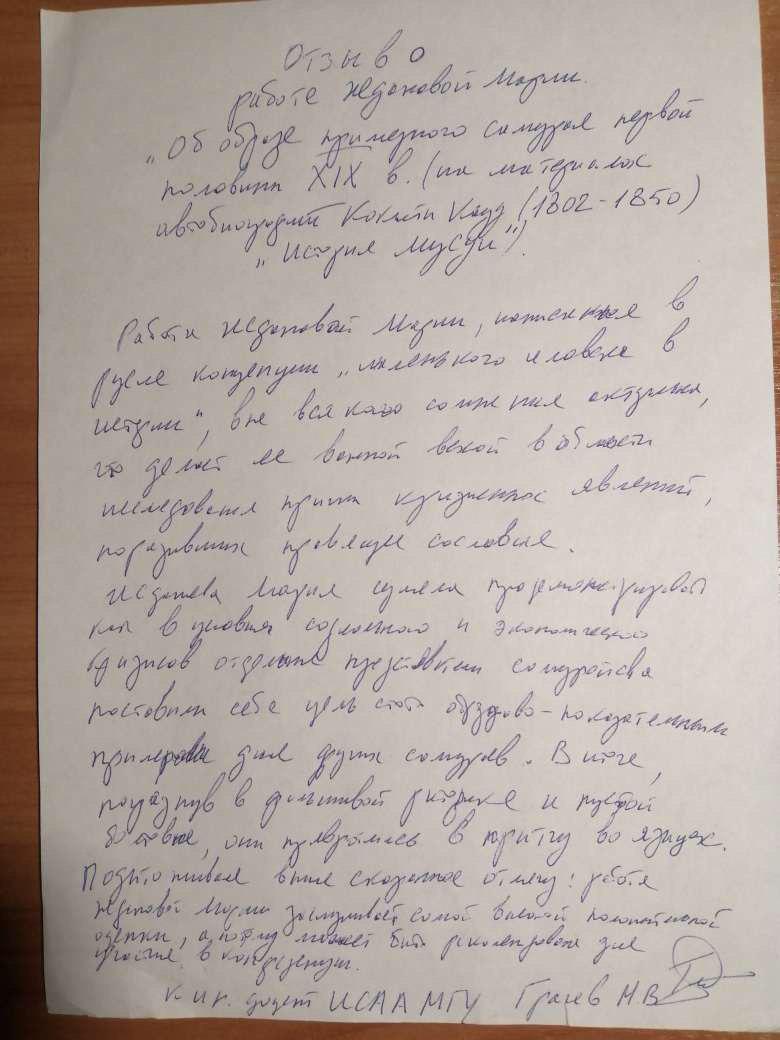 Отзыв о
работе Ждановой Марии.
"Об образе примерного самурая первой
половины XIX в. (на материалах
автобиографии Кацу (1802-1850)
"История Мусуи").
Работа Ждановой Марии, написанная в
русле концепции "маленького человека в
истории", вне всякого сомнения актуальна,
что делает ее важной вехой в области
исследования причин кризисных явлений,
поразивших правящее сословие.
Жданова Мария сумела продемонстрировать
как в условиях социального и экономического
кризисов отдельные представители самурайства
поставили себе цель стать образцово-показательными
примерами для других самураев. В итоге,
погрязнув в фальшивой риторике и пустой
болтовне, они превратились в притчу во языцех.
Подытоживая выше сказанное отмечу: работа
Ждановой Марии заслуживает самой высокой положительной
оценки, а потому может быть рекомендована для
участия в конференции.
к.и.н. доцент ИСАА МГУ Грачев М.В